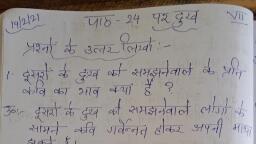 19/2/21 पाठ - 24 पर दुख VII
प्रश्नों के उत्तर लिखो :-
1. दूसरों के दुख को समझनेवाले के प्रति
कवि का भाव क्या है ?
उ०:- दूसरों के दुख को समझनेवाले लोगों के
सामने कवि गर्वोन्नत होकर अपनी माथा